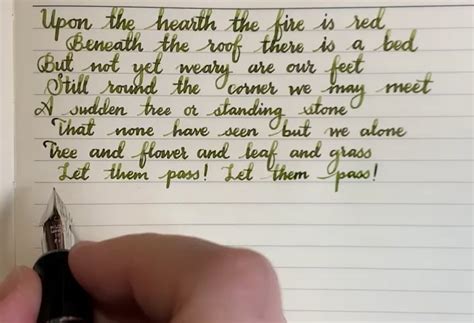 Upon the hearth the fire is red
Beneath the roof there is a bed
But not yet weary are our feet
Still round the corner we may meet
A sudden tree or standing stone
That none have seen but we alone
Tree and flower and leaf and grass
Let them pass! Let them pass!